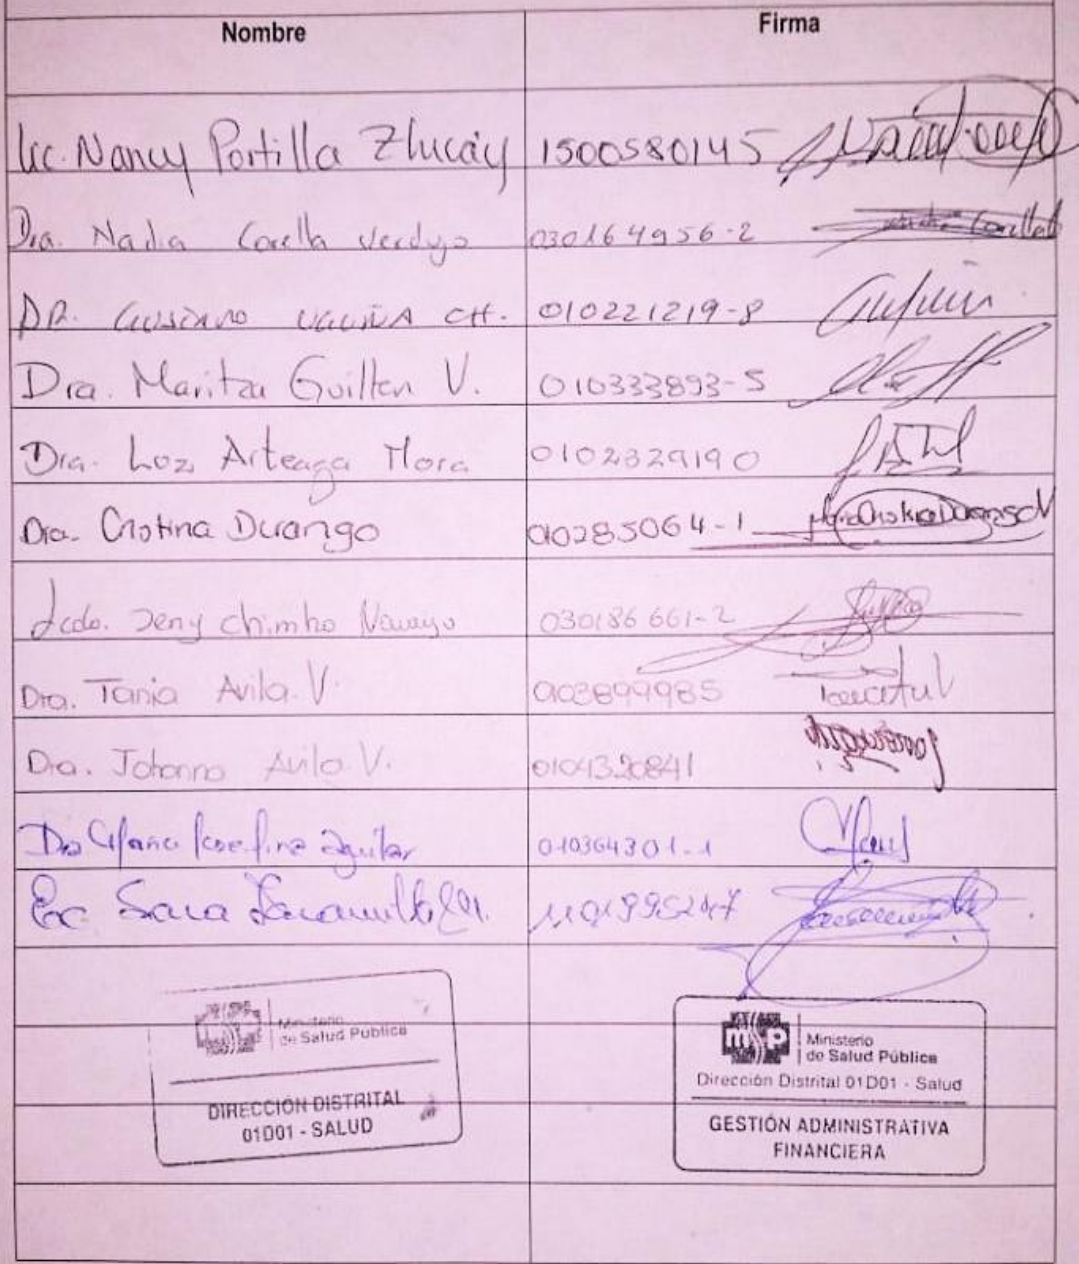 Nombre Firma
Lic. Nancy Portilla Zhucay 1500580145
Dra. Nadia Corella Verdugo 030164956-2
DR. GUSTAVO VICUÑA CH. 010221219-8
Dra. Maritza Guillen V. 010333893-5
Dra. Luz Arteaga Mora 0102329190
Dra. Cristina Durango 010285064-1
Lcda. Jeny Chimbo Naranjo 030186661-2
Dra. Tania Avila. V. 0103899985
Dra. Johanna Avila V. 0104320841
Dra Josefina Aguilar 010364301-1
Sara Jaramillo
Ministerio
de Salud Pública
DIRECCIÓN DISTRITAL
01D01 - SALUD
msp
Ministerio
de Salud Pública
Dirección Distrital 01D01 - Salud
GESTIÓN ADMINISTRATIVA
FINANCIERA